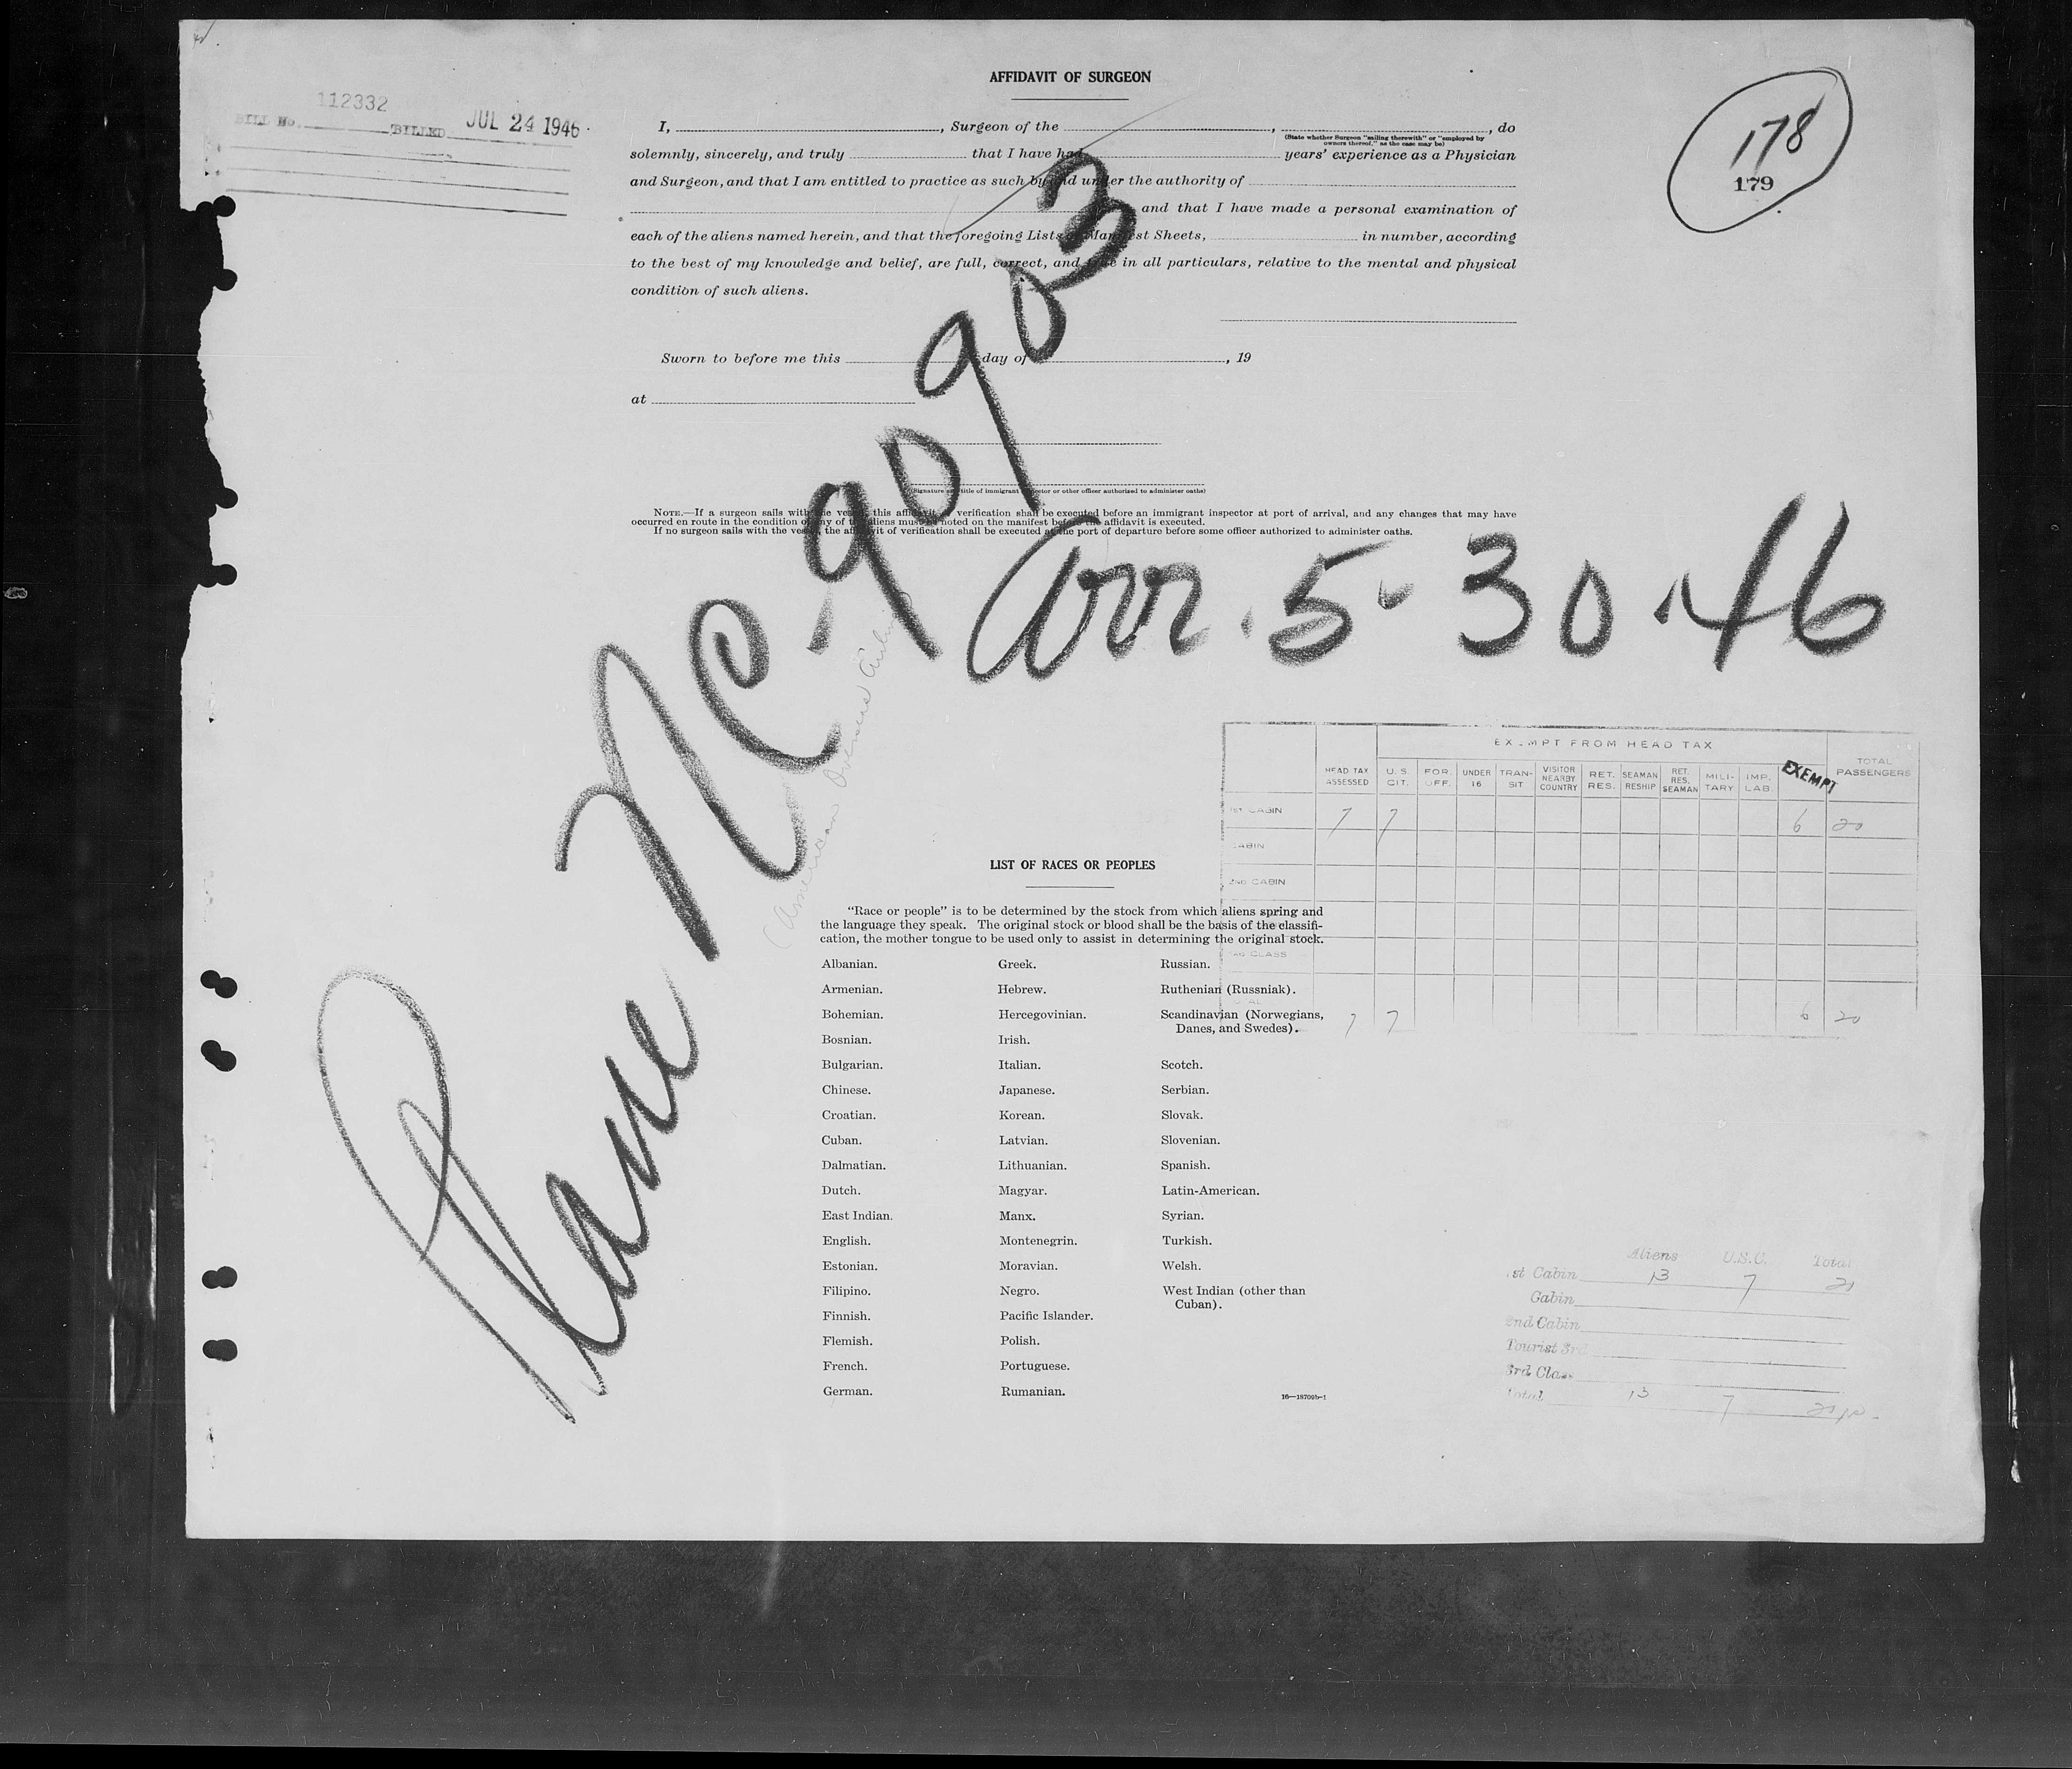 AFFIDAVIT OF SURGEON
112332
BILL No. BILLED JUL 24 1946
178
179
I, , Surgeon of the , , do
(State whether Surgeon "sailing therewith" or "employed by
owners thereof," as the case may be)
solemnly, sincerely, and truly that I have had years' experience as a Physician
and Surgeon, and that I am entitled to practice as such by and under the authority of
and that I have made a personal examination of
each of the aliens named herein, and that the foregoing Lists or Manifest Sheets, in number, according
to the best of my knowledge and belief, are full, correct, and true in all particulars, relative to the mental and physical
condition of such aliens.
Sworn to before me this day of , 19
at
(Signature and title of immigrant inspector or other officer authorized to administer oaths)
NOTE.—If a surgeon sails with the vessel, this affidavit of verification shall be executed before an immigrant inspector at port of arrival, and any changes that may have
occurred en route in the condition of any of the aliens must be noted on the manifest before the affidavit is executed.
If no surgeon sails with the vessel, the affidavit of verification shall be executed at the port of departure before some officer authorized to administer oaths.
Plane NC-90903
Arr. 5-30-46
(American Overseas Airlines)
EXEMPT FROM HEAD TAX
HEAD TAX ASSESSED U.S. CIT. FOR. OFF. UNDER 16 TRANSIT VISITOR NEARBY COUNTRY RET. RES. SEAMAN RESHIP RET. RES. SEAMAN MILITARY IMP. LAB. EXEMPT TOTAL PASSENGERS
1ST CABIN 7 7 6 20
CABIN
2ND CABIN
3RD CLASS
TOTAL 7 7 6 20
LIST OF RACES OR PEOPLES
"Race or people" is to be determined by the stock from which aliens spring and
the language they speak. The original stock or blood shall be the basis of the classifi-
cation, the mother tongue to be used only to assist in determining the original stock.
Albanian.
Armenian.
Bohemian.
Bosnian.
Bulgarian.
Chinese.
Croatian.
Cuban.
Dalmatian.
Dutch.
East Indian.
English.
Estonian.
Filipino.
Finnish.
Flemish.
French.
German.
Greek.
Hebrew.
Hercegovinian.
Irish.
Italian.
Japanese.
Korean.
Latvian.
Lithuanian.
Magyar.
Manx.
Montenegrin.
Moravian.
Negro.
Pacific Islander.
Polish.
Portuguese.
Rumanian.
Russian.
Ruthenian (Russniak).
Scandinavian (Norwegians,
Danes, and Swedes).
Scotch.
Serbian.
Slovak.
Slovenian.
Spanish.
Latin-American.
Syrian.
Turkish.
Welsh.
West Indian (other than
Cuban).
16—18700b-1
Aliens U.S.C. Total
1st Cabin 13 7 20
Cabin
2nd Cabin
Tourist 3rd
3rd Class
Total 13 7 20